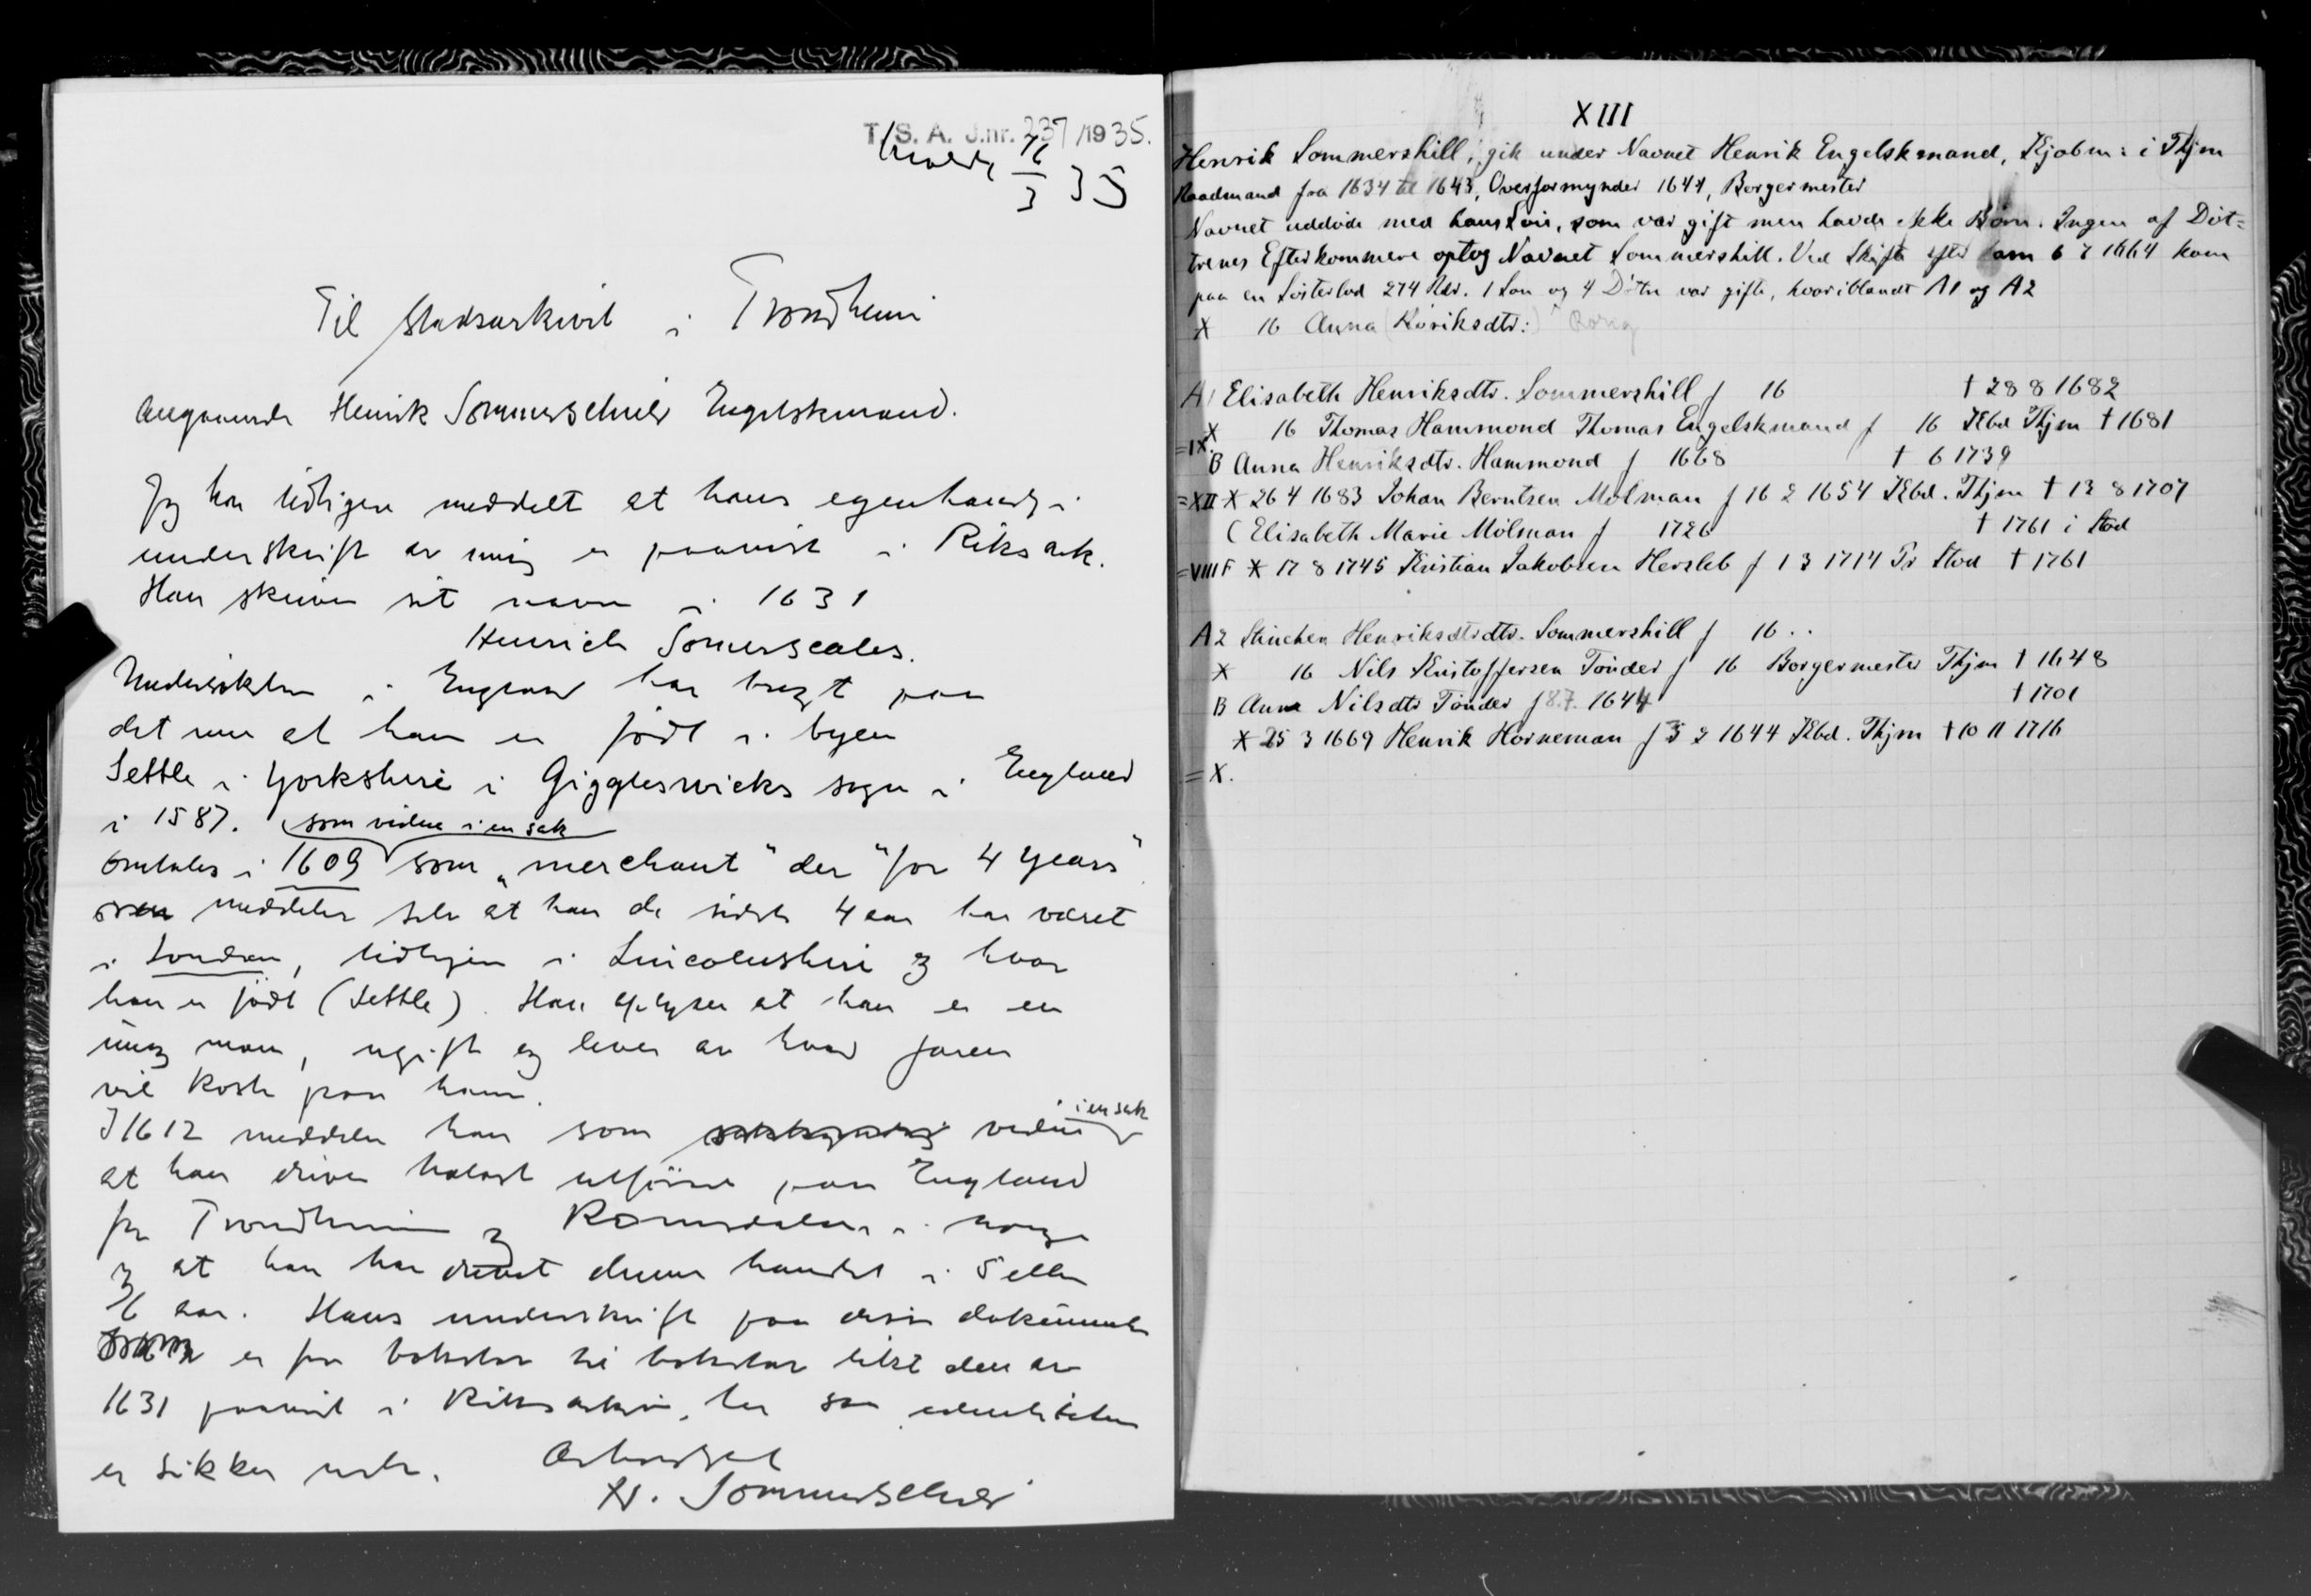 T. S. A. J.nr. 237/1935.
Molde 16/3 35
Til Statsarkivet i Trondheim
Angaaende Henrik Sommerschield Engelskmand.
Jeg har tidligere meddelt at hans egenhændige
underskrift av mig er paavist i Riksark.
Han skriver sit navn i 1631
Henrich Somerscales.
Undersøkelser i England har bragt paa
det rene at han er født i byen
Settle i Yorkshire i Giggleswicks sogn i England
i 1587. som vidne i en sak
Omtales i 1609 som „merchant" der "for 4 years"
meddeler selv at han de sidste 4 aar har været
i London, tidligere i Lincolnshire og hvor
han er født (Settle). Han oplyser at han er en
ung man, ugift og lever av hvad faren
vil koste paa ham.
I 1612 meddeler han som vidne i en sak
at han driver trelast utførsel paa England
fra Trondheim og Romsdalen i Norge
og at han har drevet denne handel i 5 eller
6 aar. Hans underskrift paa disse dokumenter
er fra bokstav til bokstav likt den av
1631 paavist i Riksarkivet, her saa identiteten
er sikker nok.
Ærbødigst
W. Sommerschield
XIII
Henrik Sommershill, gik under Navnet Henrik Engelskmand, Kjøbm: i Thjm
Raadmand fra 1634 til 1643, Overformynder 1644, Borgermester
Navnet uddøde med hans Søn, som var gift men havde ikke Børn. Ingen af Døt=
trenes Efterkommere optog Navnet Sommershill. Ved Skifte efter ham 6 7 1664 kom
paa en Søsterlod 274 Rdr. 1 Søn og 4 Døtre var gifte, hvoriblandt A1 og A2
X 16 Anna (Röriksdtr:) Rörig
A1 Elisabeth Henriksdtr. Sommershill f 16 † 28 8 1682
X 16 Thomas Hammond Thomas Engelskmand f 16 Kbd Thjm † 1681
=IX.
B Anna Henriksdtr. Hammond f 1668 † 6 1739
=XII X 26 4 1683 Johan Berntsen Mölman f 16 2 1654 Kbd. Thjm † 12 8 1707
C Elisabeth Marie Mölman f 1726 † 1761 i Stod
=VIII F X 17 8 1745 Kristian Jakobsen Hersleb f 1 3 1714 Pr Stod † 1761
A2 Stinchen Henriksdtrdtr. Sommershill f 16 . .
X 16 Nils Kristoffersen Tönder f 16 Borgermester Thjm † 1648
B Anne Nilsdtr Tönder f 8.7. 1644 † 1701
X 25 3 1669 Henrik Horneman f 3 2 1644 Kbd. Thjm † 10 11 1716
=X.